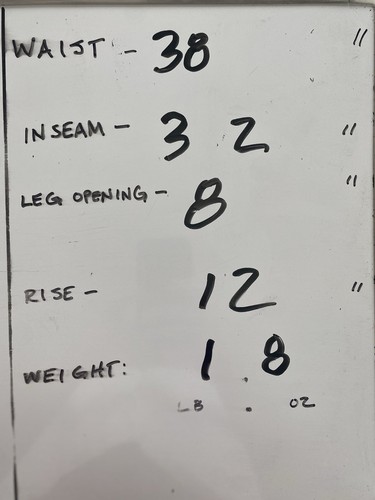 WAIST - 38 "
INSEAM - 32 "
LEG OPENING - 8 "
RISE - 12 "
WEIGHT: 1.8
LB . OZ